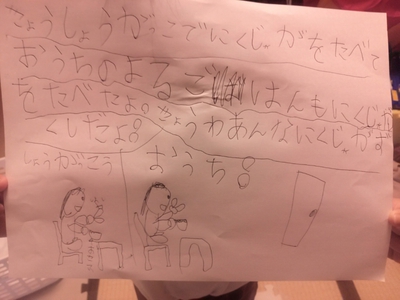 きょうしょうがっこでにくじゃがをたべて
おうちのよるごはんもにくじゃが
をたべたよ。きょうわあんなにくじゃがず
くしだよ。
しょうがこう
おうち。